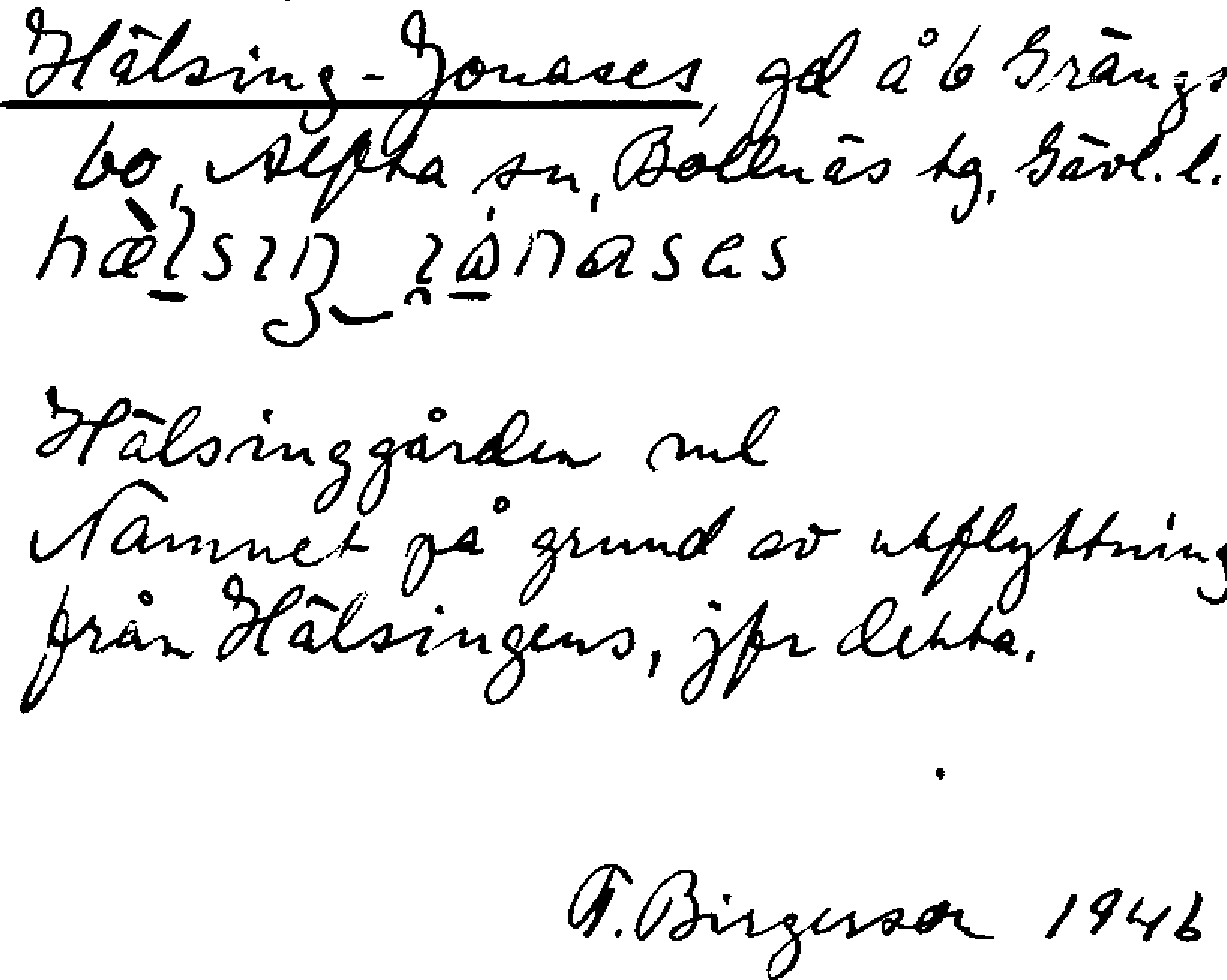 Hälsing-Jonases, gd å 6 Grängs
bo, Alfta sn, Bollnäs tg, Gävl. l.
Hälsinggården ml
Namnet på grund av utflyttning
från Hälsingens, jfr detta.
F. Birgerson 1946